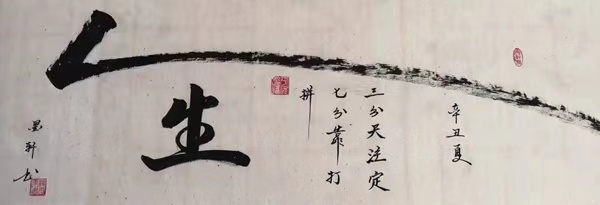 人生
三分天注定
七分靠打
拼
辛丑夏
墨轩书